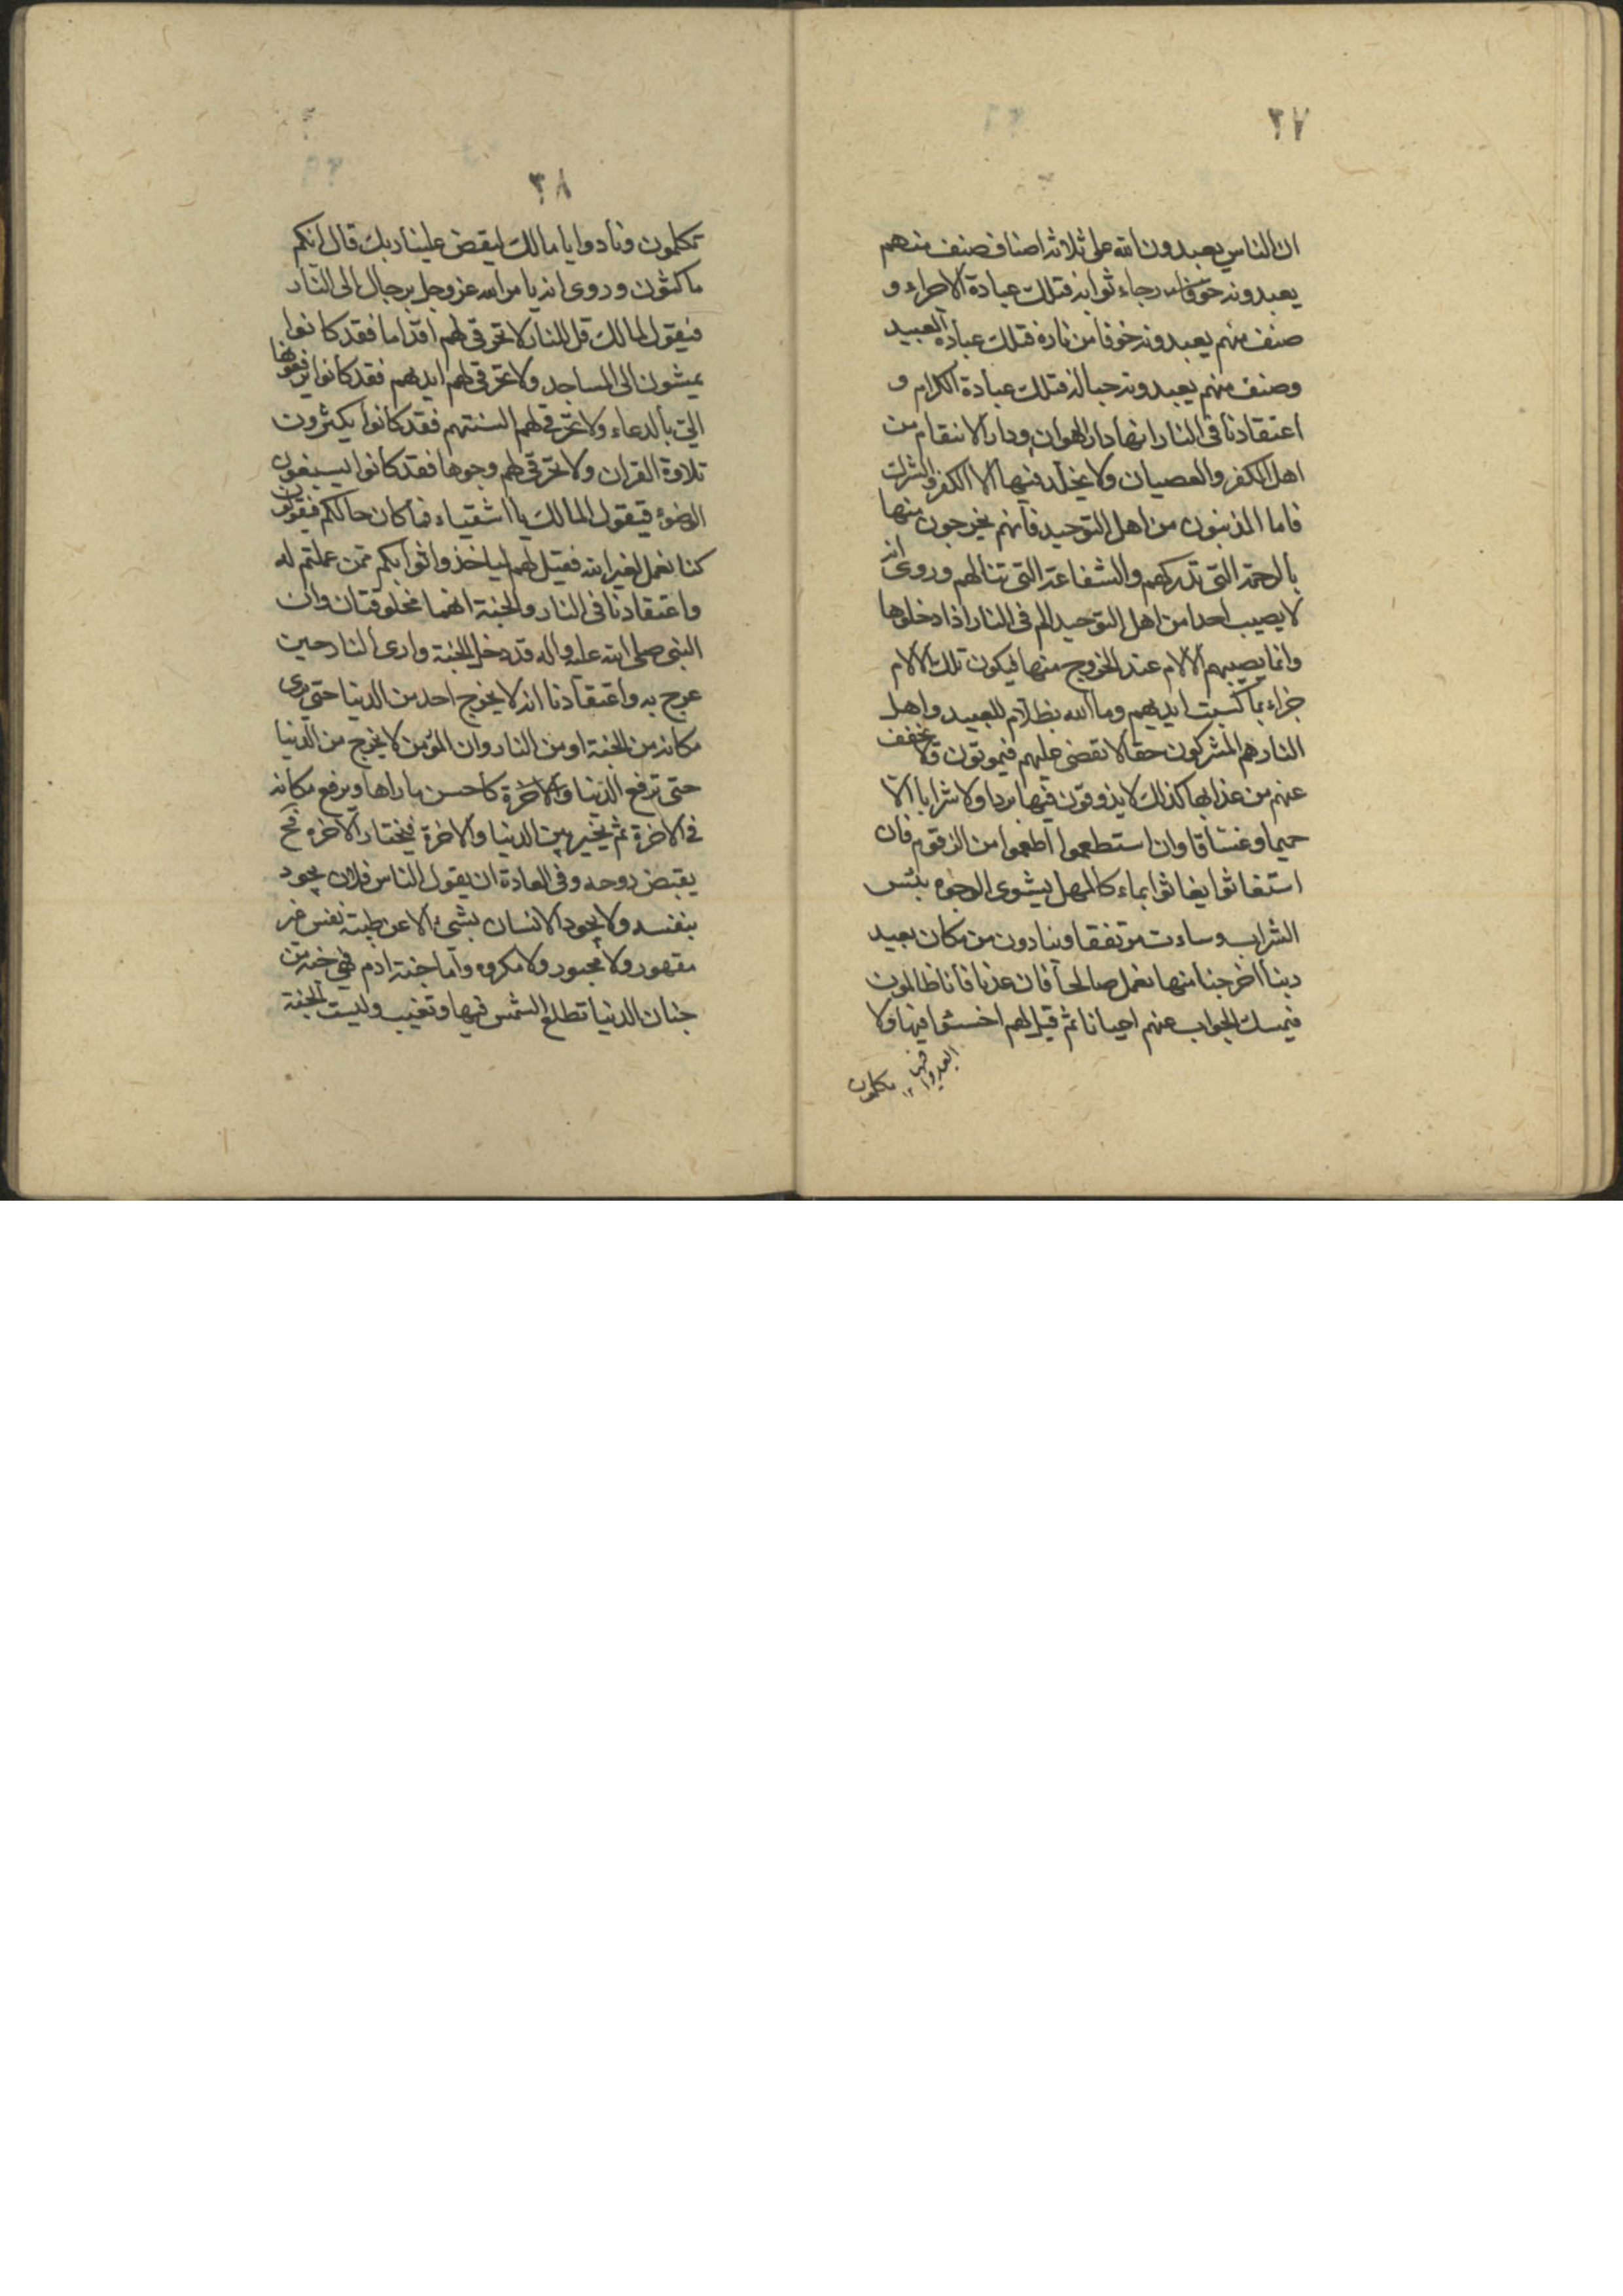 ٢٧
ان الناس يعبدون الله على ثلاثة اصناف صنف منهم
يعبدونه رجاء ثوابه فتلك عبادة الاجراء و
صنف منهم يعبدونه خوفا من ناره فتلك عبادة العبيد
وصنف منهم يعبدونه حبا له فتلك عبادة الكرام و
اعتقادنا فى النار انها دار الهوان ودار الانتقام من
اهل الكفر والعصيان ولا يخلد فيها الا الكفر والشرك
فاما المذنبون من اهل التوحيد فانهم يخرجون منها
بالرحمة التى تدركهم والشفاعة التى تنالهم وروى انه
لا يصيب احدا من اهل التوحيد الم فى النار اذا دخلوها
وانما يصيبهم الالام عند الخروج منها فيكون تلك الالام
جزاء بما كسبت ايديهم وما الله بظلام للعبيد واهل
النار هم المشركون حقا لا تقضى عليهم فيموتون ولا يخفف
عنهم من عذابها كذلك لا يذوقون فيها بردا ولا شرابا الا
حميما وغساقا وان استطعموا اطعموا من الزقوم فان
استغاثوا يغاثوا بماء كالمهل يشوى الوجوه بئس
الشراب وساءت مرتفقا وينادون من مكان بعيد
ربنا اخرجنا منها نعمل صالحا فان عدنا فانا ظالمون
فيمسك الجواب عنهم احيانا ثم قيل لهم اخسئوا فيها ولا
ابعدوا فيها ١٢
تكلمون
٢٨
تكلمون ونادوا يا مالك ليقض علينا ربك قال انكم
ماكثون وروى انه يامر الله عز وجل برجال الى النار
فيقول لمالك قل للنار لا تحرقى لهم اقداما فقد كانوا
يمشون الى المساجد ولا تحرقى لهم ايديهم فقد كانوا يرفعونها
الى بالدعاء ولا تحرقى لهم السنتهم فقد كانوا يكثرون
تلاوة القران ولا تحرقى لهم وجوها فقد كانوا يسبغون
الوضوء فيقول المالك يا اشقياء فما كان حالكم فيقولون
كنا نعمل لغير الله فقيل لهم لياخذوا ثوابكم ممن عملتم له
واعتقادنا فى النار والجنة انهما مخلوقتان وان
النبى صلى الله عليه واله قد دخل الجنة وارى النار حين
عرج به واعتقادنا انه لا يخرج احد من الدنيا حتى يرى
مكانه من الجنة او من النار وان المؤمن لا يخرج من الدنيا
حتى ترفع الدنيا والاخرة كاحسن ما راها ويرفع مكانه
فى الاخرة ثم يخير بين الدنيا والاخرة فيختار الاخره فح
يقبض روحه وفى العادة ان يقول الناس فلان يجود
بنفسه ولا يجود الانسان بشىء الا عن طيبة نفس غير
مقهور ولا مجبور ولا مكروه واما جنة ادم فهى جنة من
جنان الدنيا تطلع الشمس فيها وتغيب وليست الجنة